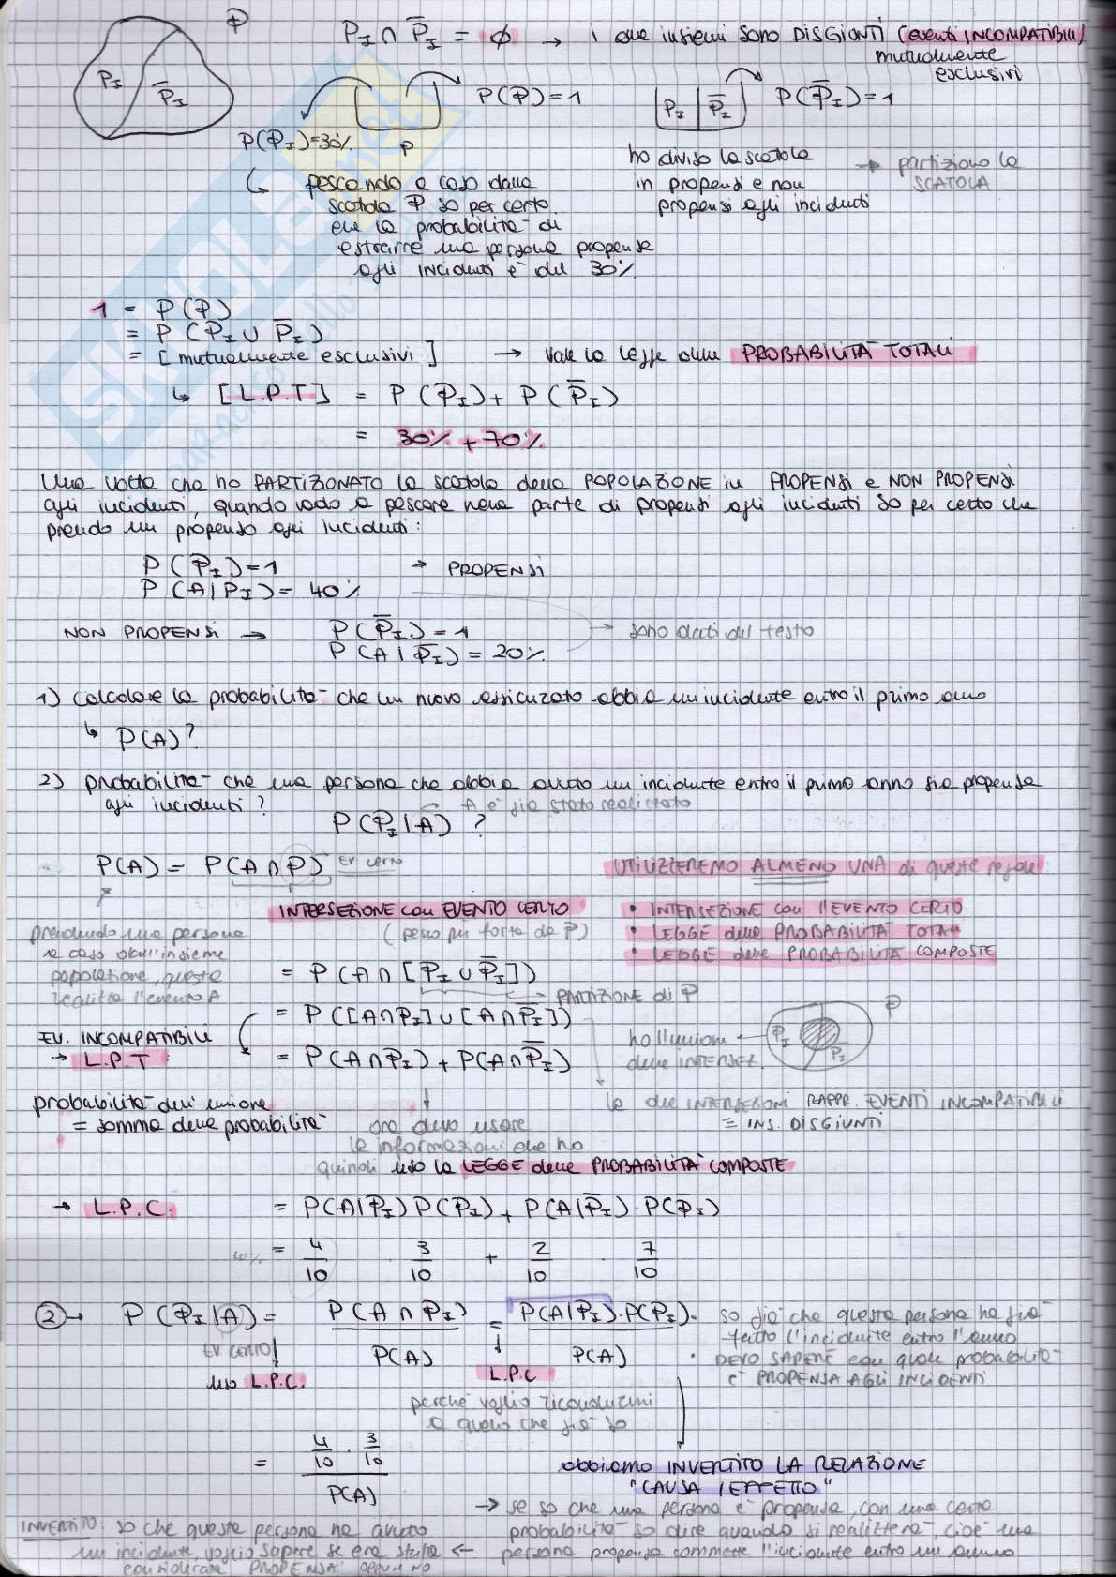 P
P_I ∩ P̅_I = ∅ → i due insiemi sono DISGIUNTI (eventi INCOMPATIBILI)
mutualmente
esclusivi
P_I
P̅_I
P(P)=1
P_I | P̅_I
P(P̅_I)=1
P(P_I)=30%
P
↳ pescando a caso dalla
scatola P so per certo
che la probabilità di
estrarre una persona propensa
agli incidenti è del 30%
ho diviso la scatola
in propensi e non
propensi agli incidenti
→ partiziono la
SCATOLA
1 = P(P)
= P(P_I ∪ P̅_I)
= [mutualmente esclusivi] → vale la legge delle PROBABILITÀ TOTALI
↳ [L.P.T] = P(P_I) + P(P̅_I)
= 30% + 70%
Una volta che ho PARTIZIONATO la scatola della POPOLAZIONE in PROPENSI e NON PROPENSI
agli incidenti, quando vado a pescare nella parte di propensi agli incidenti so per certo che
prendo un propenso agli incidenti:
P(P_I)=1 → PROPENSI
P(A|P_I)= 40%
NON PROPENSI → P(P̅_I) = 1
P(A|P̅_I) = 20%
→ sono dati del testo
1) calcolare la probabilità che un nuovo assicurato abbia un incidente entro il primo anno
↳ P(A)?
2) probabilità che una persona che abbia avuto un incidente entro il primo anno sia propensa
agli incidenti?
A è già stato realizzato
P(P_I|A) ?
P(A) = P(A ∩ P) EV CERTO
UTILIZZEREMO ALMENO UNA di queste regole
INTERSEZIONE con EVENTO CERTO
(pesco per forza da P)
• INTERSEZIONE con l'EVENTO CERTO
• LEGGE delle PROBABILITÀ TOTALI
• LEGGE delle PROBABILITÀ COMPOSTE
prendendo una persona
a caso dall'insieme
popolazione, questa
realizza l'evento A
= P(A ∩ [P_I ∪ P̅_I])
→ PARTIZIONE di P
= P([A∩P_I] ∪ [A∩P̅_I])
EV. INCOMPATIBILI
→ L.P.T
= P(A∩P_I) + P(A∩P̅_I)
ho l'unione
delle INTERSEZ.
P
P_I
P̅_I
le due INTERSEZIONI RAPPR. EVENTI INCOMPATIBILI
= INS. DISGIUNTI
probabilità dell'unione
= somma delle probabilità
ora devo usare
le informazioni che ho
quindi uso la LEGGE delle PROBABILITÀ COMPOSTE
→ L.P.C. = P(A|P_I) P(P_I) + P(A|P̅_I) · P(P̅_I)
40% = 4/10 3/10 + 2/10 · 7/10
② → P(P_I|A) = P(A ∩ P_I) / P(A) = P(A|P_I)·P(P_I) / P(A)
EV CERTO
uso L.P.C.
L.P.C
perché voglio ricondurmi
a quello che già so
• so già che questa persona ha già
fatto l'incidente entro l'anno
• DEVO SAPERE con quale probabilità
è PROPENSA AGLI INCIDENTI
= 4/10 · 3/10 / P(A)
abbiamo INVERTITO LA RELAZIONE
"CAUSA / EFFETTO"
→ se so che una persona è propensa, con una certa
probabilità so dire quando si realizzerà, cioè una
persona propensa commette l'incidente entro un anno
INVERTITO: so che questa persona ha avuto
un incidente, voglio sapere se era stata ←
considerata PROPENSA